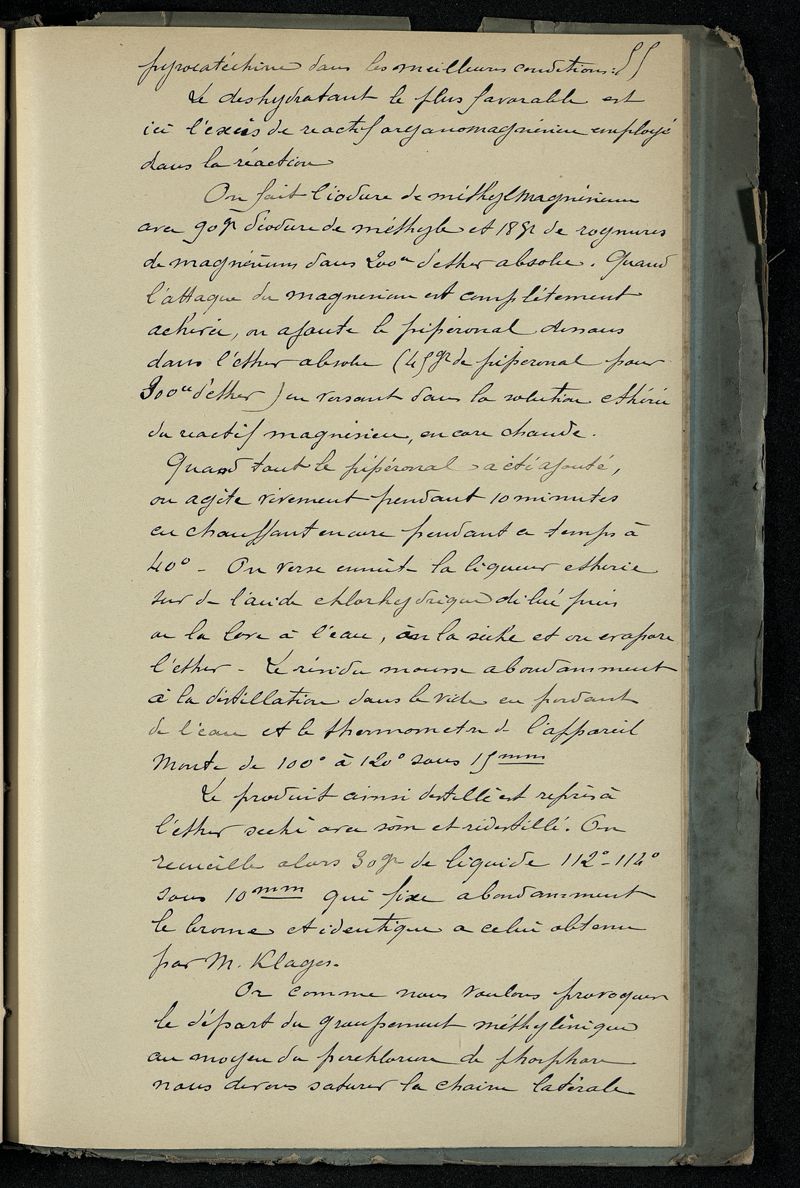 pyrocatéchine dans les meilleures conditions: 55
Le deshydratant le plus favorable est
ici l'excès de reactif organomagnésien employé
dans la réaction
On fait l'iodure de méthylmagnésium
avec 90gr d'iodure de méthyle et 18gr de rognures
de magnésium dans 200cc d'ether absolu. Quand
l'attaque du magnesium est complétement
achevée, on ajoute le pipéronal dissous
dans l'éther absolu (45gr de pipéronal pour
300cc d'éther) en versant dans la solution éthérée
du reactif magnésien, encore chaude.
Quand tout le pipéronal a été ajouté,
on agite vivement pendant 10 minutes
en chauffant encore pendant ce temps à
40° - On verse ensuite la liqueur etherée
sur de l'acide chlorhydrique dilué puis
on la lave à l'eau, on la sèche et on evapore
l'éther - Le résidu mousse abondamment
à la distillation dans le vide en perdant
de l'eau et le thermometre de l'appareil
monte de 100° à 120° sous 15mm
Le produit ainsi distillé est repris à
l'éther seché avec soin et redistillé. On
recueille alors 30gr de liquide 112°-114°
sous 10mm qui fixe abondamment
le brome et identique a celui obtenu
par M. Klages.
Or comme nous voulons provoquer
le départ du groupement méthylénique
au moyen du perchlorure de phosphore
nous devons saturer la chaine latérale